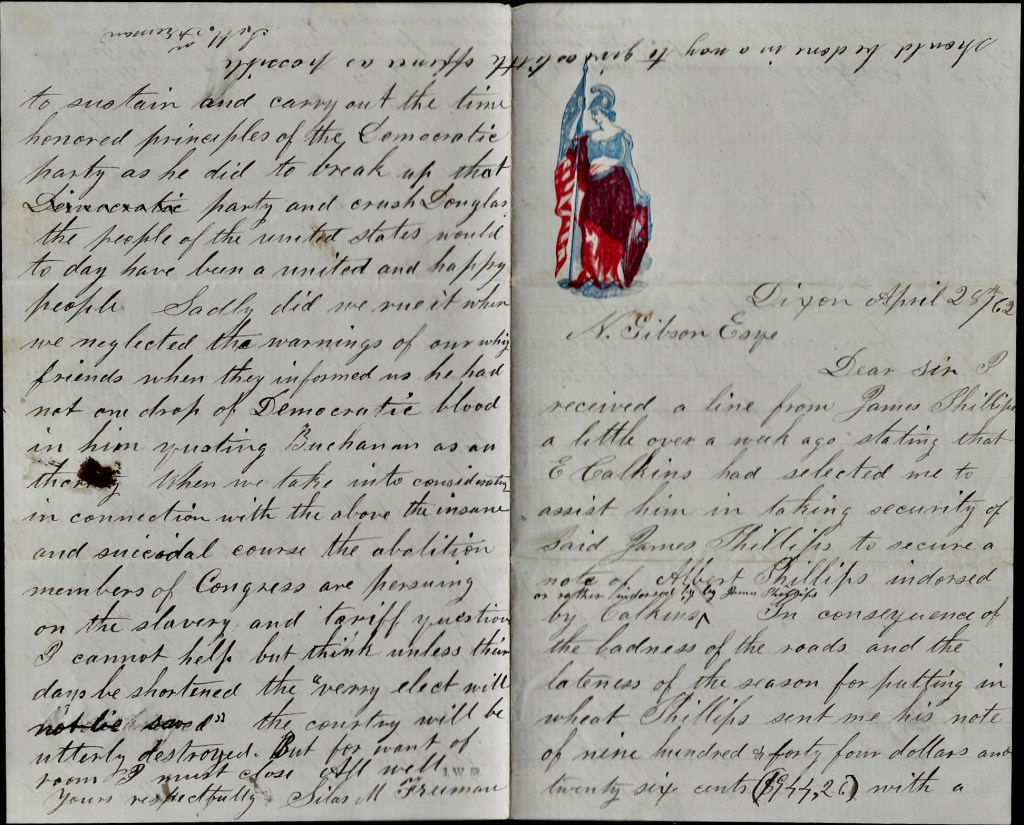 should be done in a way to give as little offence as possible
S. M. Freeman
to sustain and carry out the time
honored principles of the Democratic
party as he did to break up that
Democratic party and crush Douglas
the people of the united states would
to day have been a united and happy
people Sadly did we rue it when
we neglected the warnings of our whig
friends when they informed us he had
not one drop of Democratic blood
in him quoting Buchanan as au
thority When we take into consideration
in connection with the above the insane
and suicidal course the abolition
members of Congress are persuing
on the slavery and tariff question
I cannot help but think unless their
days be shortened the "verry elect will
not be saved" the country will be
utterly destroyed. But for want of
room I must close All well
Yours respectfully Silas M Freeman
Dixon April 28th/62
N. Gibson Esqe
Dear Sir I
received a line from James Phillips
a little over a week ago stating that
E Calkins had selected me to
assist him in taking security of
said James Phillips to secure a
note of Albert Phillips indorsed
or rather indorsed by by James Phillips
by Calkins ^ In consequence of
the badness of the roads and the
lateness of the season for putting in
wheat Phillips sent me his note
of nine hundred & forty four dollars and
twenty six cents ($944,26) with a